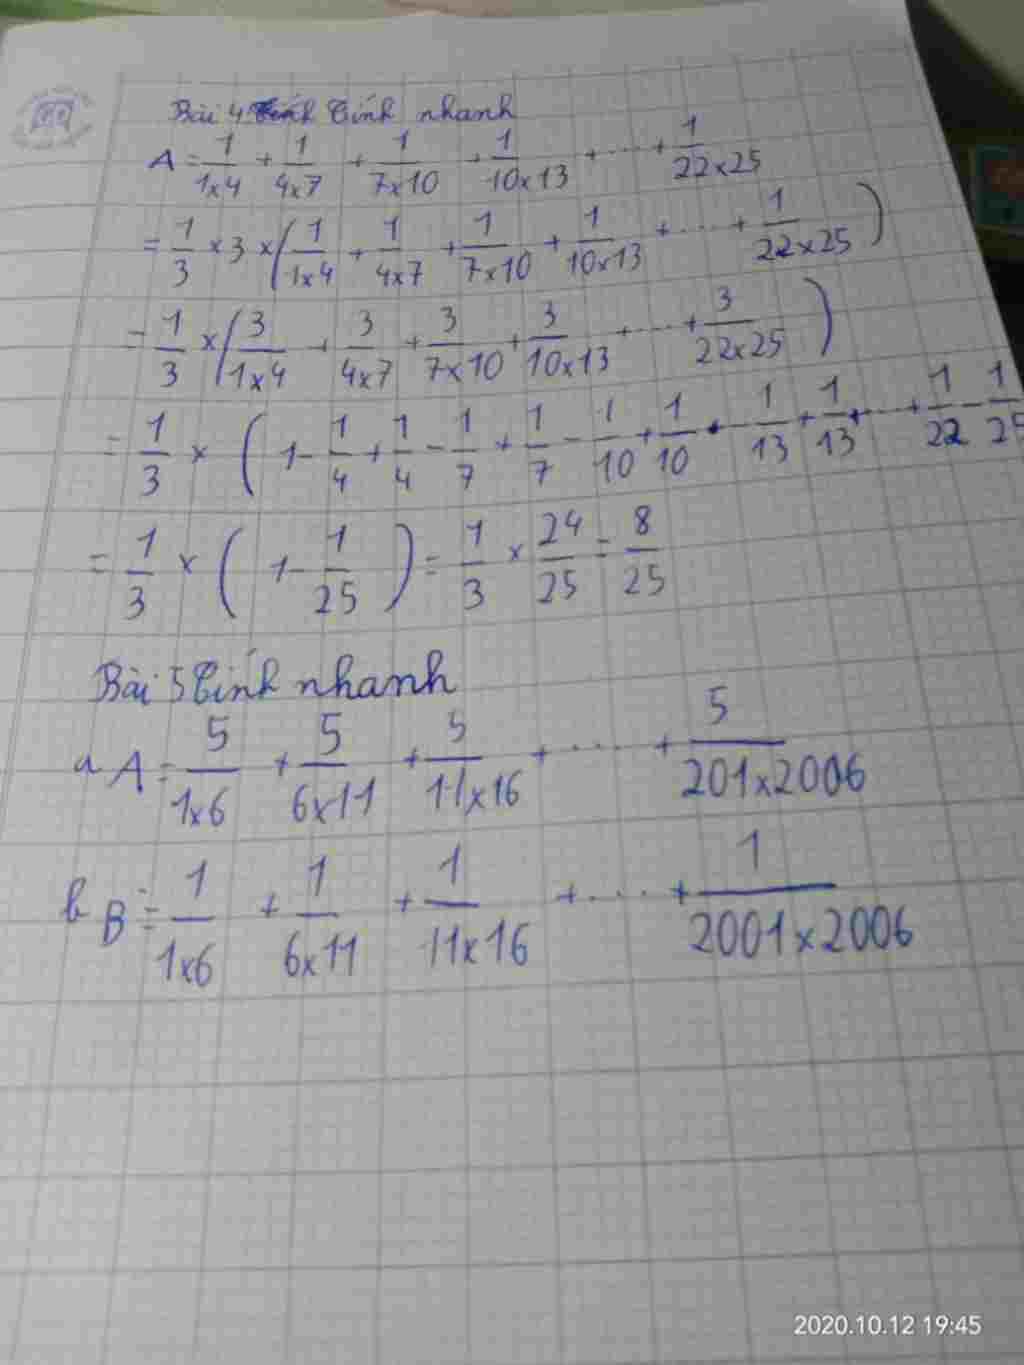 Bài 4 Tính nhanh
A = 1/1x4 + 1/4x7 + 1/7x10 + 1/10x13 + ... + 1/22x25
= 1/3 x 3 x (1/1x4 + 1/4x7 + 1/7x10 + 1/10x13 + ... + 1/22x25)
= 1/3 x (3/1x4 + 3/4x7 + 3/7x10 + 3/10x13 + ... + 3/22x25)
= 1/3 x (1 - 1/4 + 1/4 - 1/7 + 1/7 - 1/10 + 1/10 - 1/13 + 1/13 + ... + 1/22 - 1/25
= 1/3 x (1 - 1/25) = 1/3 x 24/25 = 8/25
Bài 5 Tính nhanh
a A = 5/1x6 + 5/6x11 + 5/11x16 + ... + 5/201x2006
b B = 1/1x6 + 1/6x11 + 1/11x16 + ... + 1/2001x2006
2020.10.12 19:45